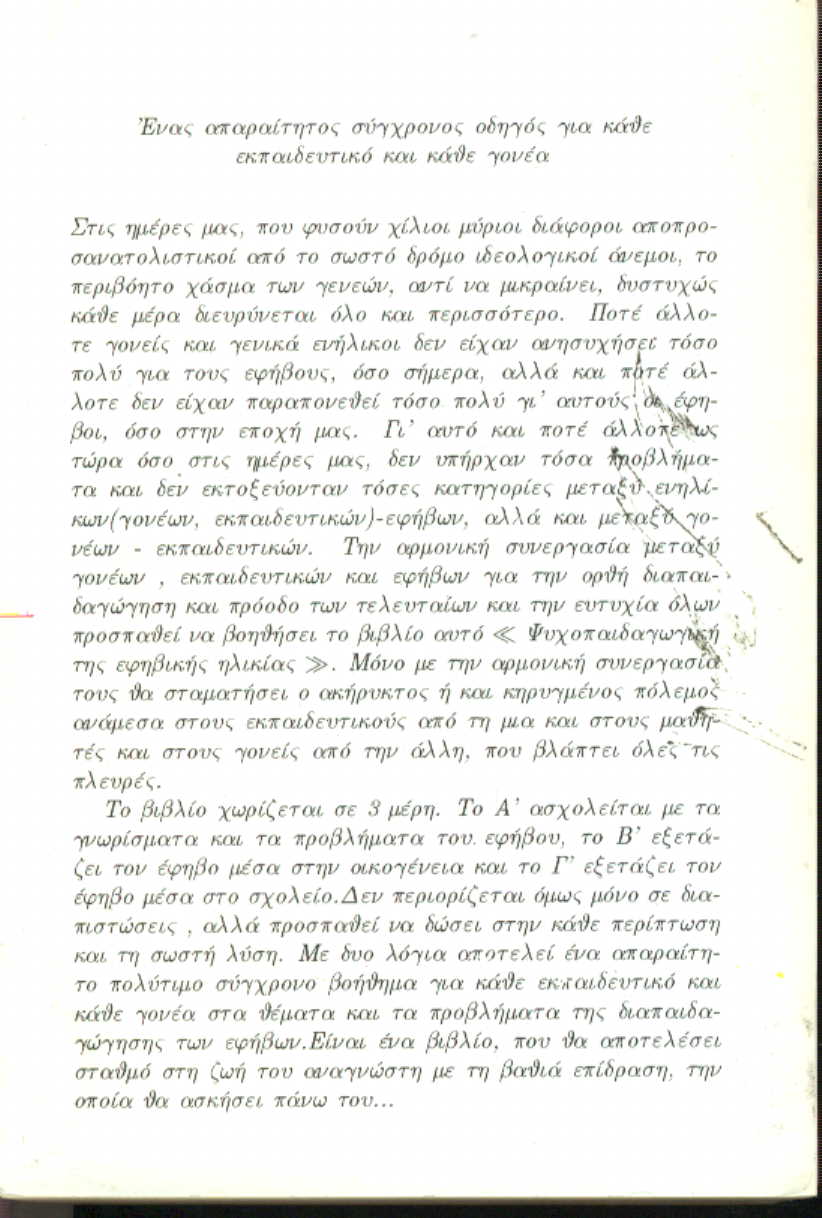 Ένας απαραίτητος σύγχρονος οδηγός για κάθε
εκπαιδευτικό και κάθε γονέα
Στις ημέρες μας, που φυσούν χίλιοι μύριοι διάφοροι αποπρο-
σανατολιστικοί από το σωστό δρόμο ιδεολογικοί άνεμοι, το
περιβόητο χάσμα των γενεών, αντί να μικραίνει, δυστυχώς
κάθε μέρα διευρύνεται όλο και περισσότερο. Ποτέ άλλο-
τε γονείς και γενικά ενήλικοι δεν είχαν ανησυχήσει τόσο
πολύ για τους εφήβους, όσο σήμερα, αλλά και ποτέ άλ-
λοτε δεν είχαν παραπονεθεί τόσο πολύ γι' αυτούς οι έφη-
βοι, όσο στην εποχή μας. Γι' αυτό και ποτέ άλλοτε ως
τώρα όσο στις ημέρες μας, δεν υπήρχαν τόσα προβλήμα-
τα και δεν εκτοξεύονταν τόσες κατηγορίες μεταξύ ενηλί-
κων(γονέων, εκπαιδευτικών)-εφήβων, αλλά και μεταξύ γο-
νέων - εκπαιδευτικών. Την αρμονική συνεργασία μεταξύ
γονέων , εκπαιδευτικών και εφήβων για την ορθή διαπαι-
δαγώγηση και πρόοδο των τελευταίων και την ευτυχία όλων
προσπαθεί να βοηθήσει το βιβλίο αυτό ≪ Ψυχοπαιδαγωγική
της εφηβικής ηλικίας ≫. Μόνο με την αρμονική συνεργασία
τους θα σταματήσει ο ακήρυκτος ή και κηρυγμένος πόλεμος
ανάμεσα στους εκπαιδευτικούς από τη μια και στους μαθη-
τές και στους γονείς από την άλλη, που βλάπτει όλες τις
πλευρές.
Το βιβλίο χωρίζεται σε 3 μέρη. Το Α' ασχολείται με τα
γνωρίσματα και τα προβλήματα του εφήβου, το Β' εξετά-
ζει τον έφηβο μέσα στην οικογένεια και το Γ' εξετάζει τον
έφηβο μέσα στο σχολείο.Δεν περιορίζεται όμως μόνο σε δια-
πιστώσεις , αλλά προσπαθεί να δώσει στην κάθε περίπτωση
και τη σωστή λύση. Με δυο λόγια αποτελεί ένα απαραίτη-
το πολύτιμο σύγχρονο βοήθημα για κάθε εκπαιδευτικό και
κάθε γονέα στα θέματα και τα προβλήματα της διαπαιδα-
γώγησης των εφήβων.Είναι ένα βιβλίο, που θα αποτελέσει
σταθμό στη ζωή του αναγνώστη με τη βαθιά επίδραση, την
οποία θα ασκήσει πάνω του...